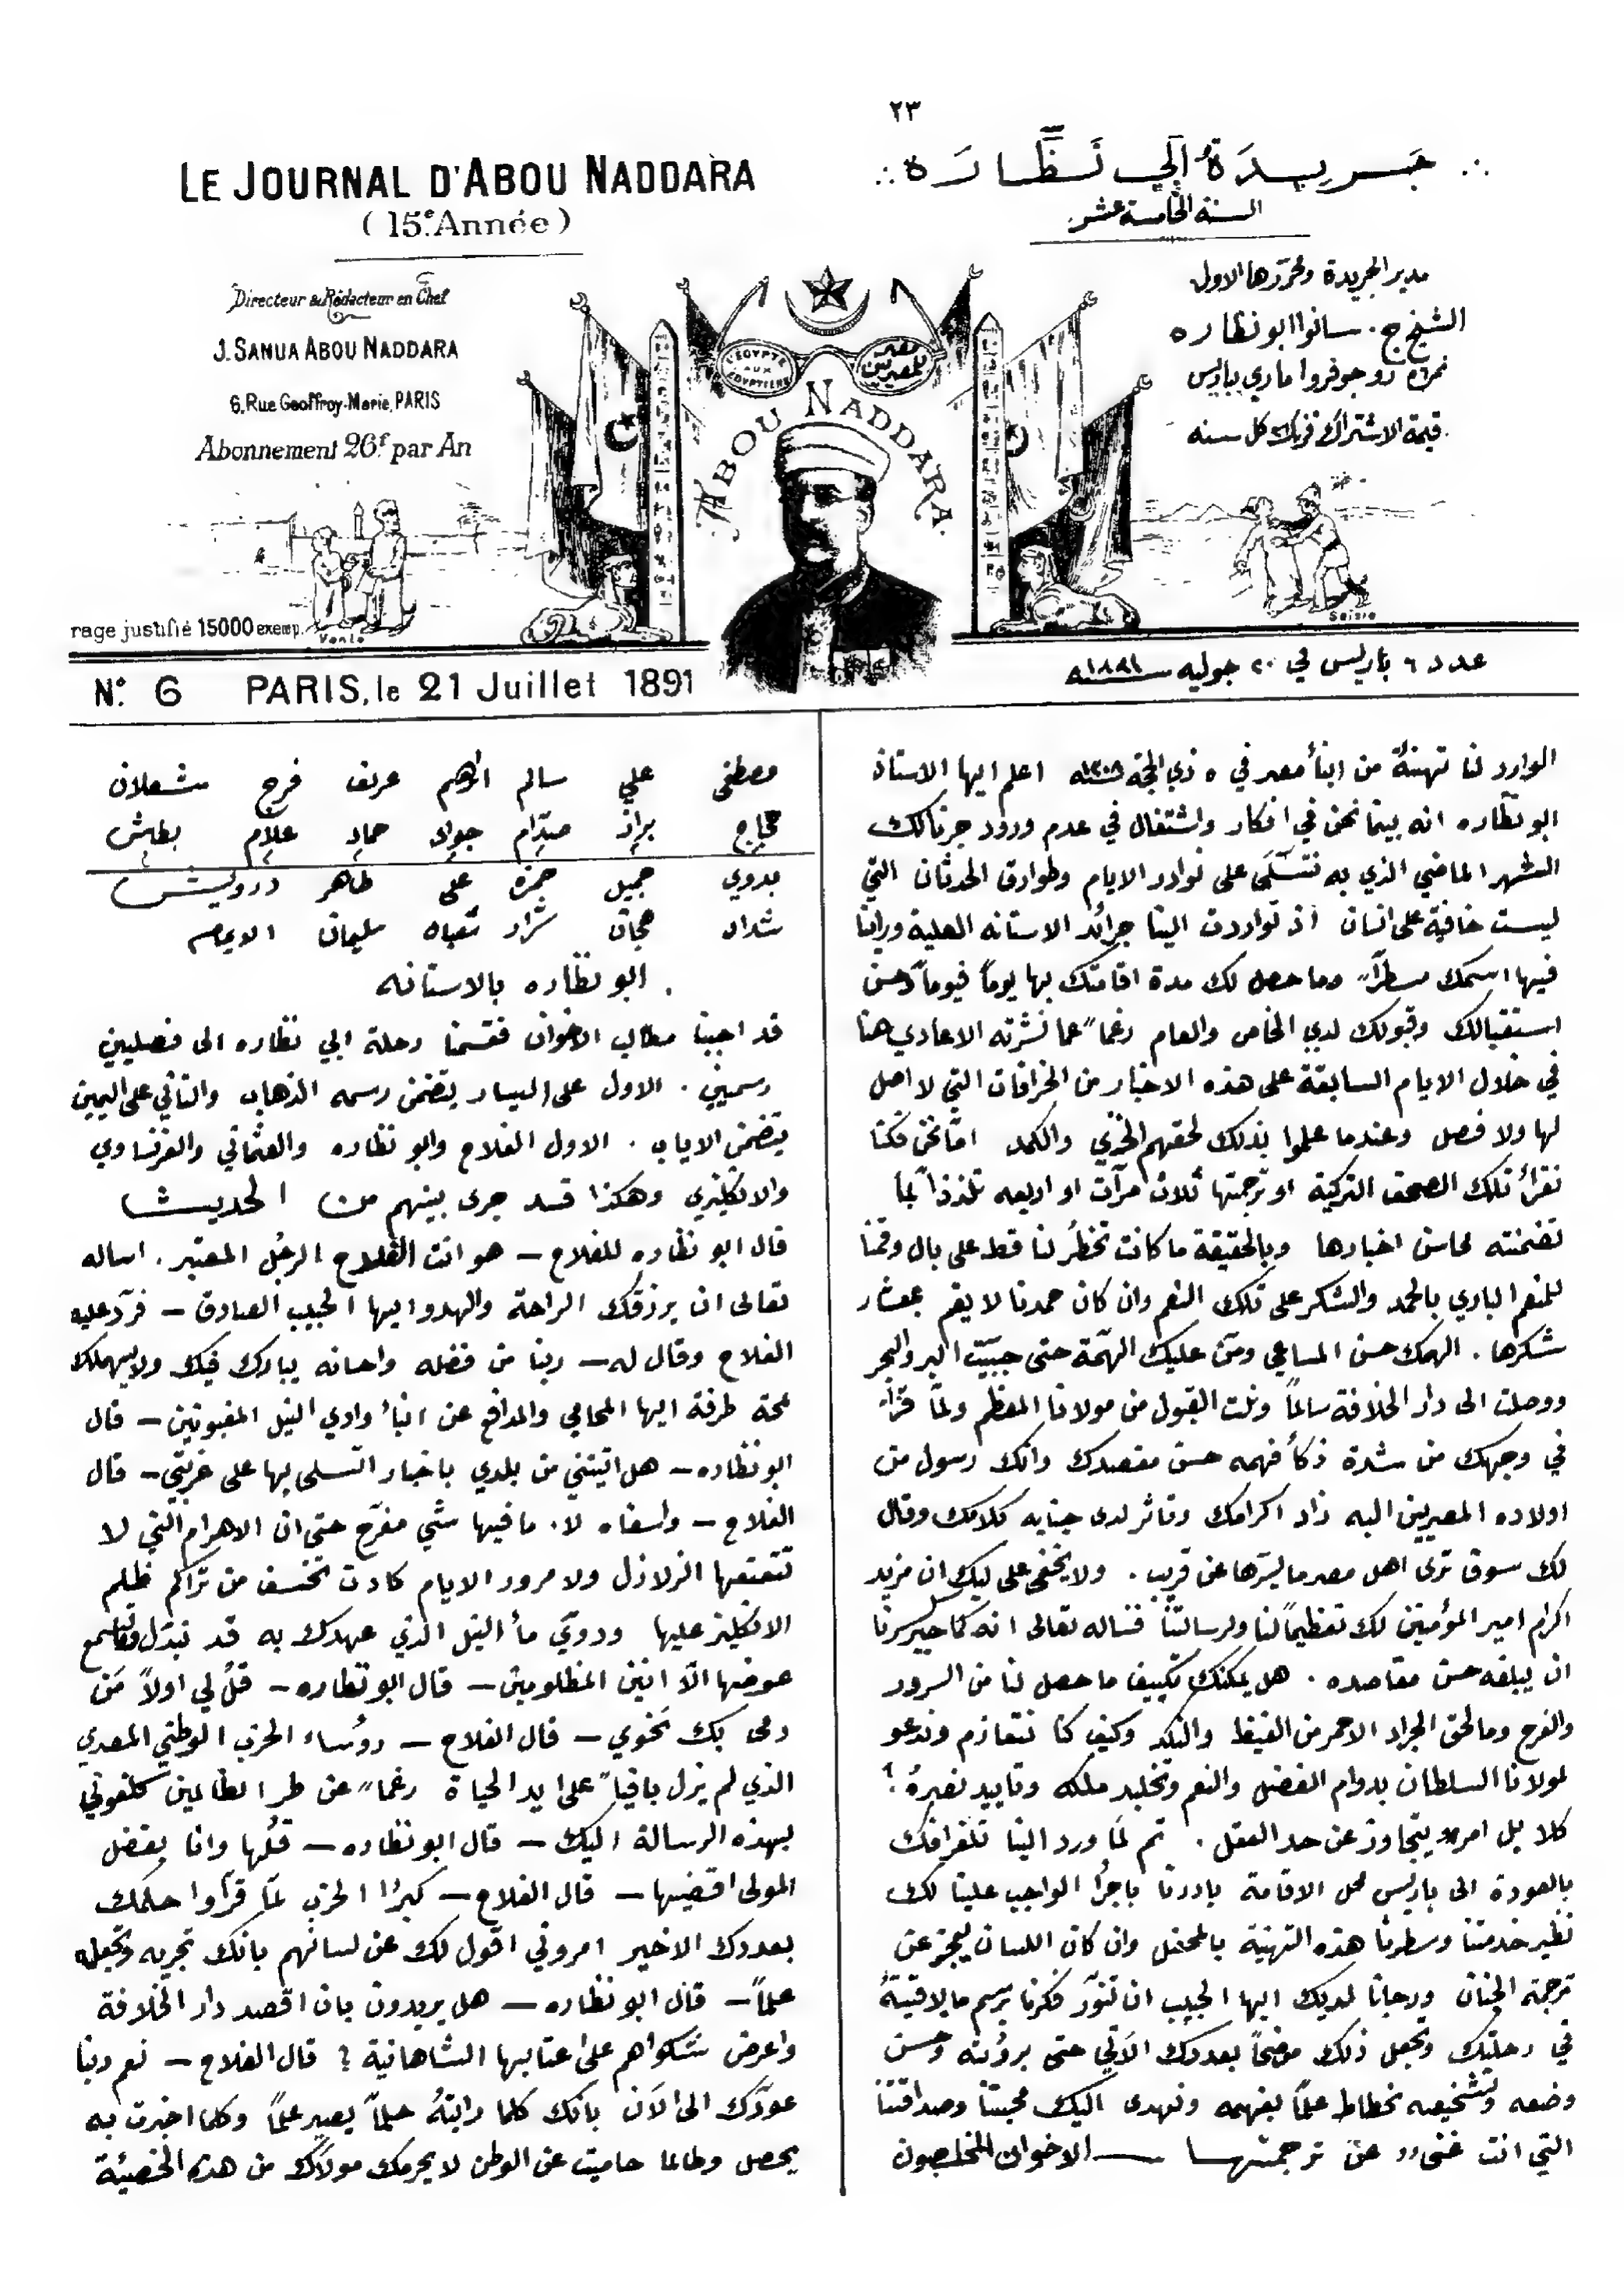 ٢٣
LE JOURNAL D'ABOU NADDARA
(15e. Année)
Directeur & Rédacteur en Chef
J. SANUA ABOU NADDARA
6, Rue Geoffroy-Marie, PARIS
Abonnement 26f par An
∴ جَريدَةُ أبي نَظَّارَة ∴
السنة الخامسة عشر
مدير الجريدة ومحرّرها الاول
الشيخ ج. سانوا ابو نظاره
نمرة ٦ رو جوفروا ماري بباريس
قيمة الاشتراك فرنك كل سنه
L'ÉGYPTE AUX ÉGYPTIENS
مصر للمصريين
ABOU NADDARA
rage justifié 15000 exemp.
Vente
Saisie
No. 6 PARIS, le 21 Juillet 1891
عدد ٦ باريس في ٢٠ جوليه سنة ١٨٩١
الوارد لنا تهنئة من ابنأ مصر في ٥ ذي الحجة سنة ١٣٠٨ اعلم ايها الاستاذ
ابو نظاره انه بينما نحن في افكار واشتغال في عدم ورود جرنالك
الشهر الماضي الذي به نتسلَّى على نوادر الايام وطوارق الحدثان التي
ليست خافية على انسان اذ تواردت الينا جرائد الاستانه العلية وراينا
فيها اسمك مسطرًا وما حصل لك مدة اقامتك بها يوماً فيوماً وحسن
استقبالك وقبولك لدي الخاص والعام رغماً عما نشرته الاعادي هنا
في خلال الايام السابقة على هذه الاخبار من الخرافات التي لا اصل
لها ولا فصل وعندما علموا بذلك لحقهم الخزي والكمد امّا نحن فكنا
نقرأ تلك الصحف التركية او ترجمتها ثلاث مرّات او اربعه تلذذاً لما
تضمنته محاسن اخبارها وبالحقيقة ما كانت تخطُر لنا قط على بال وقمنا
للمنعم الباري بالحمد والشكر على تلك النعم وان كان حمدنا لا يقم بمعشار
شكرها . الهمك حسن المساعي ومنّ عليك الهمّة حتى جبيّت البر والبحر
ووصلت الى دار الخلافة سالماً ونلت القبول من مولانا المعظم ولمّا قرأ
في وجهك من شدة ذكأ فهمه حسن مقصدك وانك رسول من
اولاده المصريين اليه زاد اكرامك وتاثر لدى جنابه كلامك وقال
لك سوف ترى اهل مصر ما يسرّها عن قريب . ولا يخفى على ليك ان مزيد
اكرام امير المؤمنين لك تعظيماً لنا ولرسالتنا فنساله تعالى انه كما جبر سرنا
ان يبلغه حسن مقاصده . هل يمكنك تكييف ما حصل لنا من السرور
والفرح وما لحق الجراد الاحمر من الغيظ والنكد وكيف كنا نتعازم وندعو
لمولانا السلطان بدوام الفضل والنعم وتخليد ملكه وتاييد نصيرهُ ؟
كلا بل امر يتجاوز عن حد العقل . ثم لمّا ورد الينا تلغرافك
بالعودة الى باريس محل الاقامة بادرنا باجرأ الواجب علينا لك
نظير خدمتنا وسطرنا هذه التهنية بالمحفل وان كان اللسان ليعجز عن
ترجمة الجنان ورجانا لديك ايها الحبيب ان تنوّر فكرنا برسم ما لاقيتهُ
في رحلتك وتجعل ذلك موضحاً بعددك الآتي حتى برؤيته وحسن
وضعه وتشخيصه نحطاط علماً بفهمه ونهدى اليك محبتنا وصداقتنا
التي انت غنى عن ترجمتها — الاخوان المخلصون
مصطفى علي سالم ادهم عريف فرج شعلان
حجاج براز صدّام جواد حماد علام بطاش
بدوي جميل حمزه على طاهر درويش
شداد هجان شراد شعبان سليمان
. ابو نظاره بالاستانه
قد اجبنا مطالب الاخوان فقسمنا رحلة ابي نظاره الى فصليين
رسميين . الاول على اليسار يتضمن رسمه الذهاب والثاني على اليمين
يتضمن الاياب . الاول الفلاح وابو نظاره والعثماني والفرنساوي
والانكليزي وهكذا قد جرى بينهم من الحديث
قال ابو نظاره للفلاح — هو انت الفلاح الرجُل المعتبر . اساله
تعالى ان يرزقك الراحة والهدو ايها الحبيب الصادق — فردّ عليه
الفلاح وقال له — ربنا من فضله واحسانه يبارك فيك ولا يهملك
لمحة طرفة ايها المحامي والمدافع عن ابنأ وادي النيل المغبونين — قال
ابو نظاره — هل اتيتني من بلدي باخبار اتسلى بها على غربتي — قال
الفلاح — واسفاه لا . ما فيها شي مفرّح حتى ان الاهرام التي لا
تتعتعها الزلازل ولا مرور الايام كادت تخسف من تراكم ظلم
الانكليز عليها ودويّ مأ النيل الذي عهدك به قد تبدّل وما تسمع
عوضها الّا انين المظلومين — قال ابو نظاره — قلّ لي اولاً مَن
رمى بك نحوي — قال الفلاح — روُساء الحزب الوطني المصري
الذي لم يزل باقياً على ايد الحياة رغماً عن طر الظالمين كلفوني
بهذه الرسالة اليك — قال ابو نظاره — قلُها وانا بفضل
المولى اقضيها — قال الفلاح — كبرُا الحزب لمّا قرأوا حلمك
بعددك الاخير امروني اقول لك عن لسانهم بانك تجربه وتجعله
علماً — قال ابو نظاره — هل يريدون بان اقصد دار الخلافة
واعرض شكواهم على اعتابها الشاهانية ؟ قال الفلاح — نعم ربنا
عوّدك الى الآن بانك كلما رايتهُ حلماً يصير علماً وكلما اخبرت به
يحصل وطالما حاميت عن الوطن لا يحرمك مولاك من هذه الخصيئة